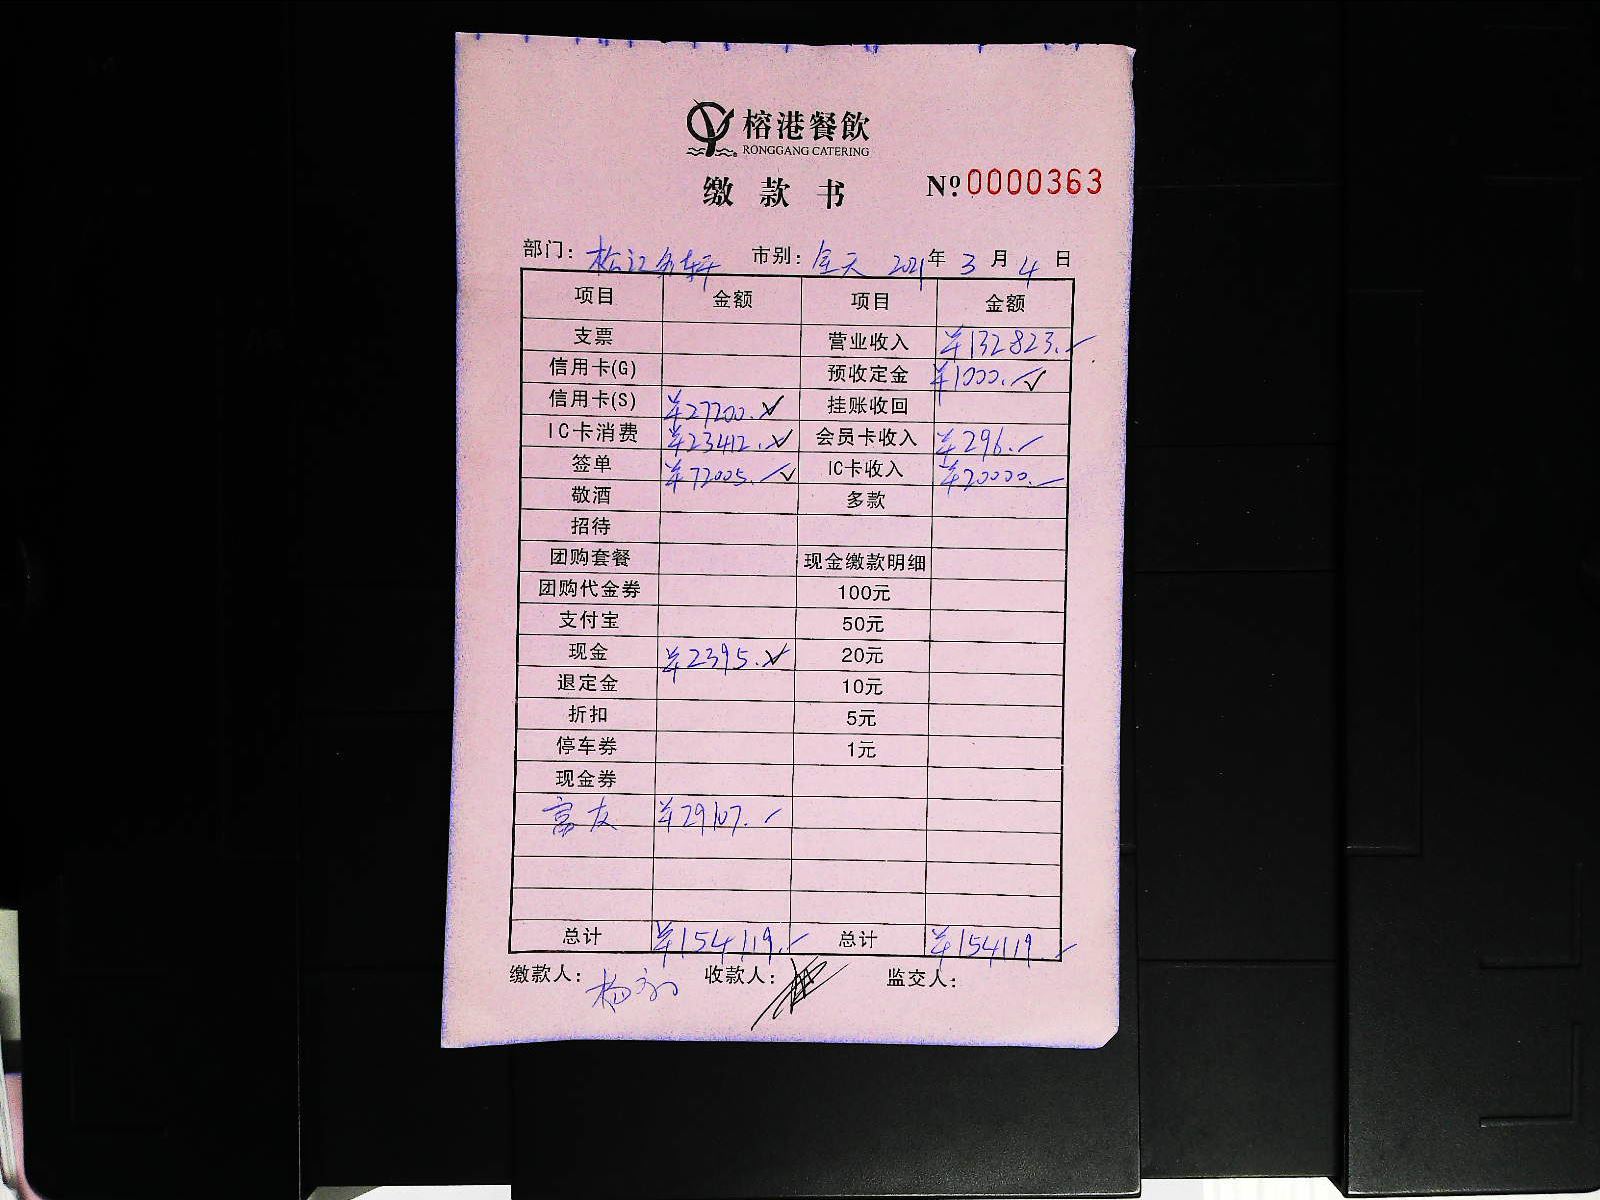 榕港餐飲
RONGGANG CATERING
缴款书
Nº 0000363
部门: 松江 轩 市别: 全天 2021年3月4日
项目 金额 项目 金额
支票 营业收入 ¥132823.
信用卡(G) 预收定金 ¥1000.
信用卡(S) ¥27200. 挂账收回
IC卡消费 ¥23412. 会员卡收入 ¥296.
签单 ¥72005. IC卡收入 ¥20000.
敬酒 多款
招待
团购套餐 现金缴款明细
团购代金券 100元
支付宝 50元
现金 ¥2395. 20元
退定金 10元
折扣 5元
停车券 1元
现金券
富友 ¥29107.
总计 ¥154119. 总计 ¥154119
缴款人: 杨 收款人: 监交人: